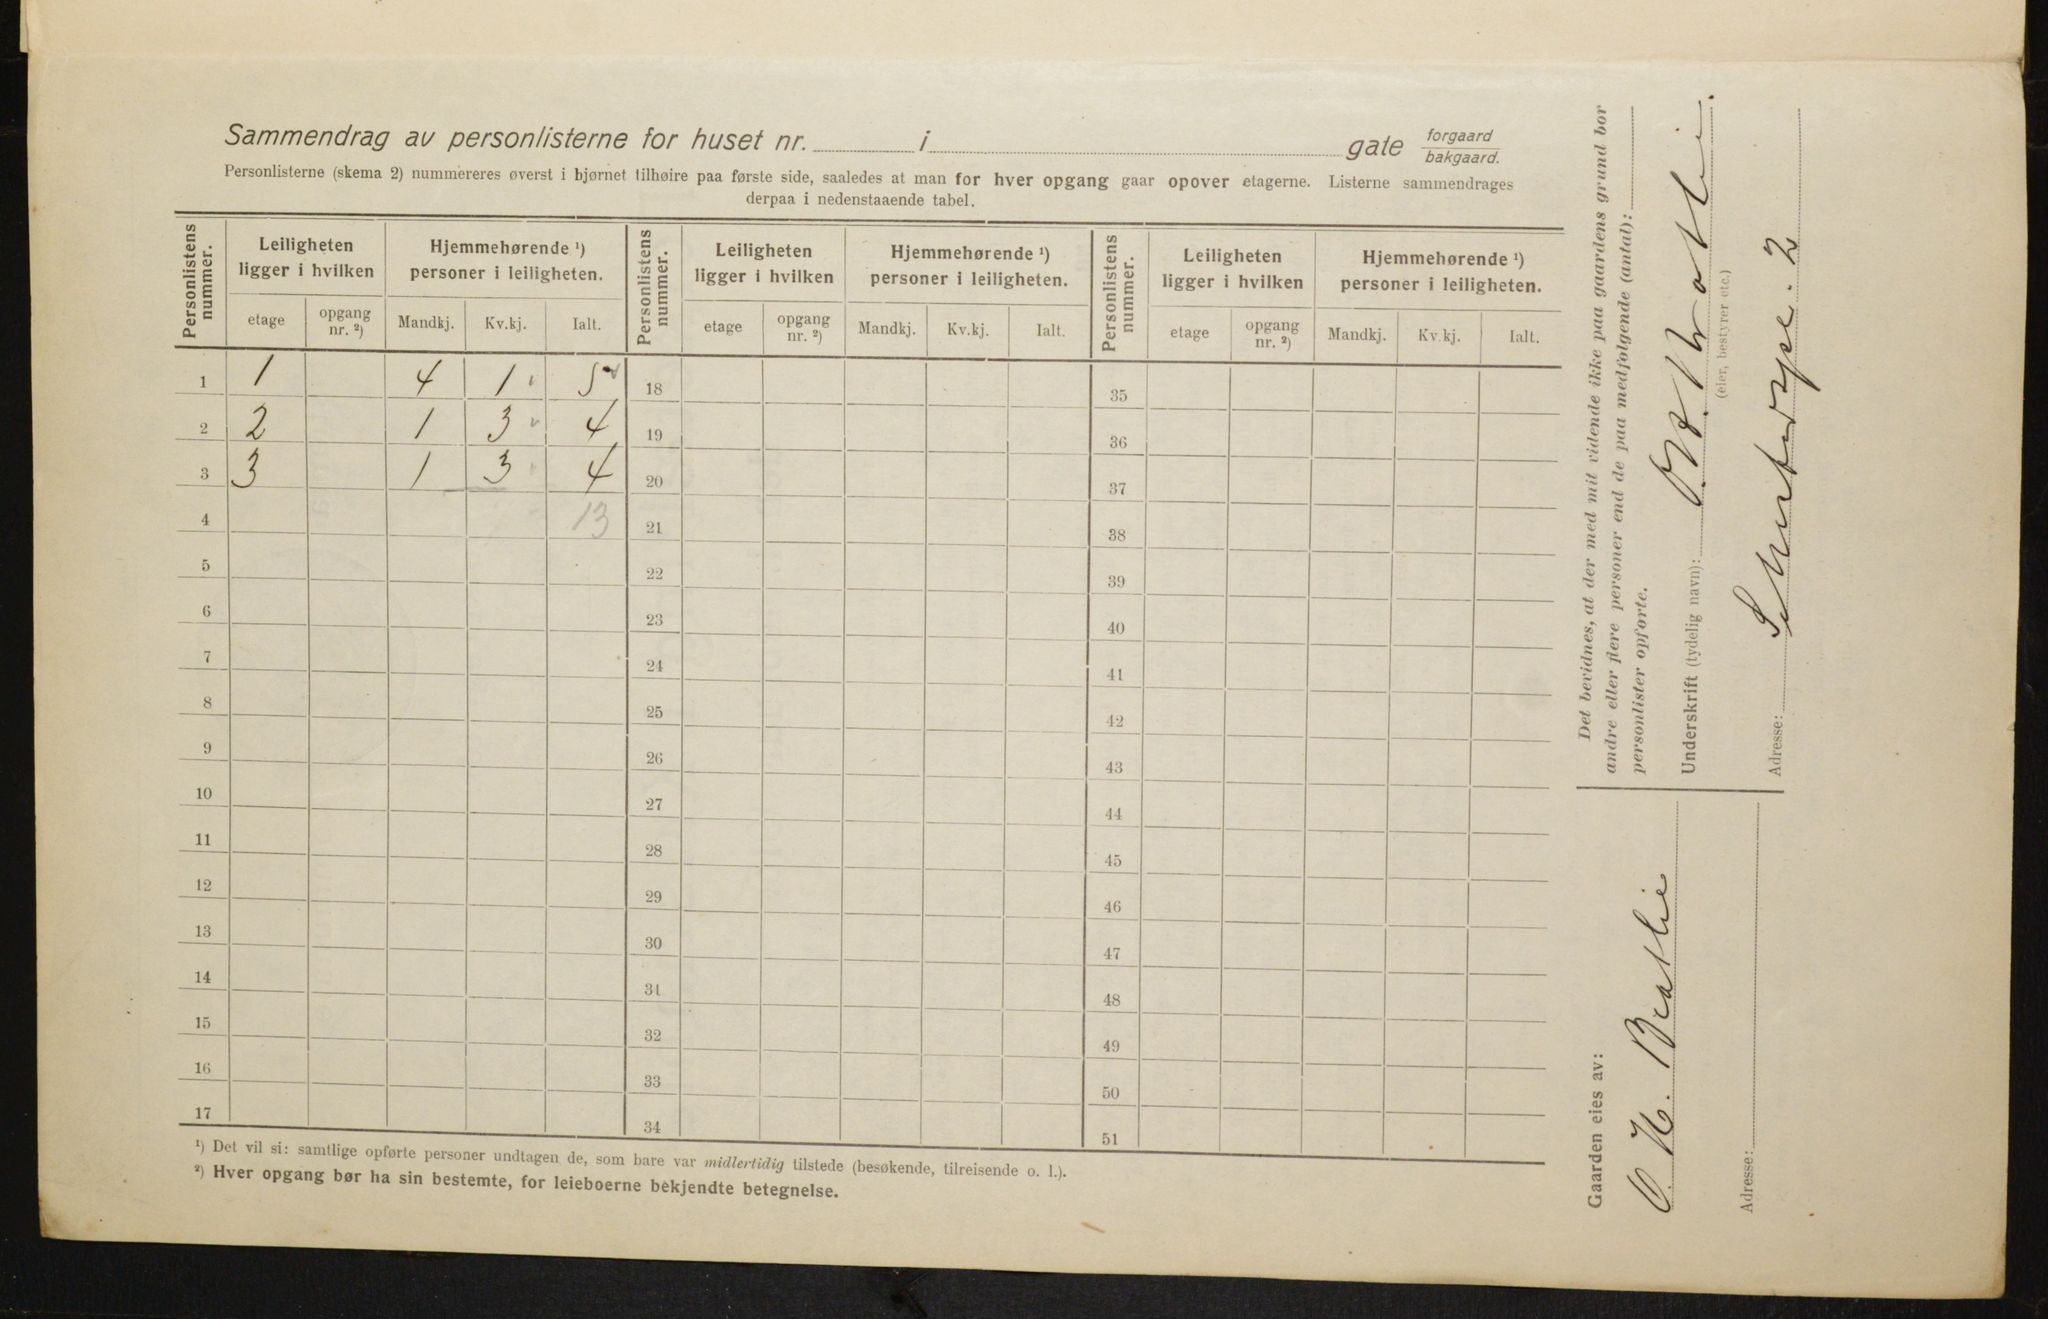 Sammendrag av personlisterne for huset nr. i gate forgaard
bakgaard.
Personlisterne (skema 2) nummereres øverst i hjørnet tilhøire paa første side, saaledes at man for hver opgang gaar opover etagerne. Listerne sammendrages
derpaa i nedenstaaende tabel.
Personlistens nummer. Leiligheten ligger i hvilken Hjemmehørende ¹) personer i leiligheten. Personlistens nummer. Leiligheten ligger i hvilken Hjemmehørende ¹) personer i leiligheten. Personlistens nummer. Leiligheten ligger i hvilken Hjemmehørende ¹) personer i leiligheten.
etage opgang nr. ²) Mandkj. Kv.kj. Ialt. etage opgang nr. ²) Mandkj. Kv.kj. Ialt. etage opgang nr. ²) Mandkj. Kv.kj. Ialt.
1 1 4 1 5 18 35
2 2 1 3 4 19 36
3 3 1 3 4 20 37
4 13 21 38
5 22 39
6 23 40
7 24 41
8 25 42
9 26 43
10 27 44
11 28 45
12 29 46
13 30 47
14 31 48
15 32 49
16 33 50
17 34 51
¹) Det vil si: samtlige opførte personer undtagen de, som bare var midlertidig tilstede (besøkende, tilreisende o. l.).
²) Hver opgang bør ha sin bestemte, for leieboerne bekjendte betegnelse.
Det bevidnes, at der med mit vidende ikke paa gaardens grund bor
andre eller flere personer end de paa medfølgende (antal):
personlister opførte.
Underskrift (tydelig navn): O. H. Bratlie.
(eier, bestyrer etc.)
Adresse: 2
Gaarden eies av:
O. H. Bratlie
Adresse: